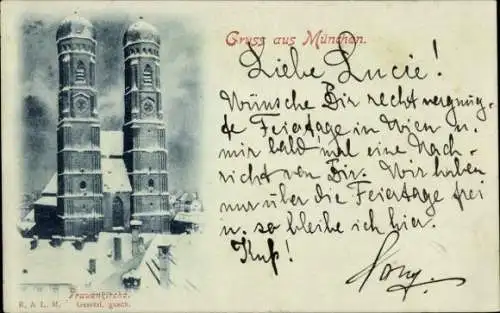 Gruss aus München.
Liebe Lucie!
Wünsche Dir recht vergnüg-
te Feiertage in Wien u.
mir bald mal eine Nach-
richt von Dir. Wir haben
nur über die Feiertage frei
u. so bleibe ich hier.
Kuß!
Frauenkirche.
R. A. L. M. Gesetzl. gesch.